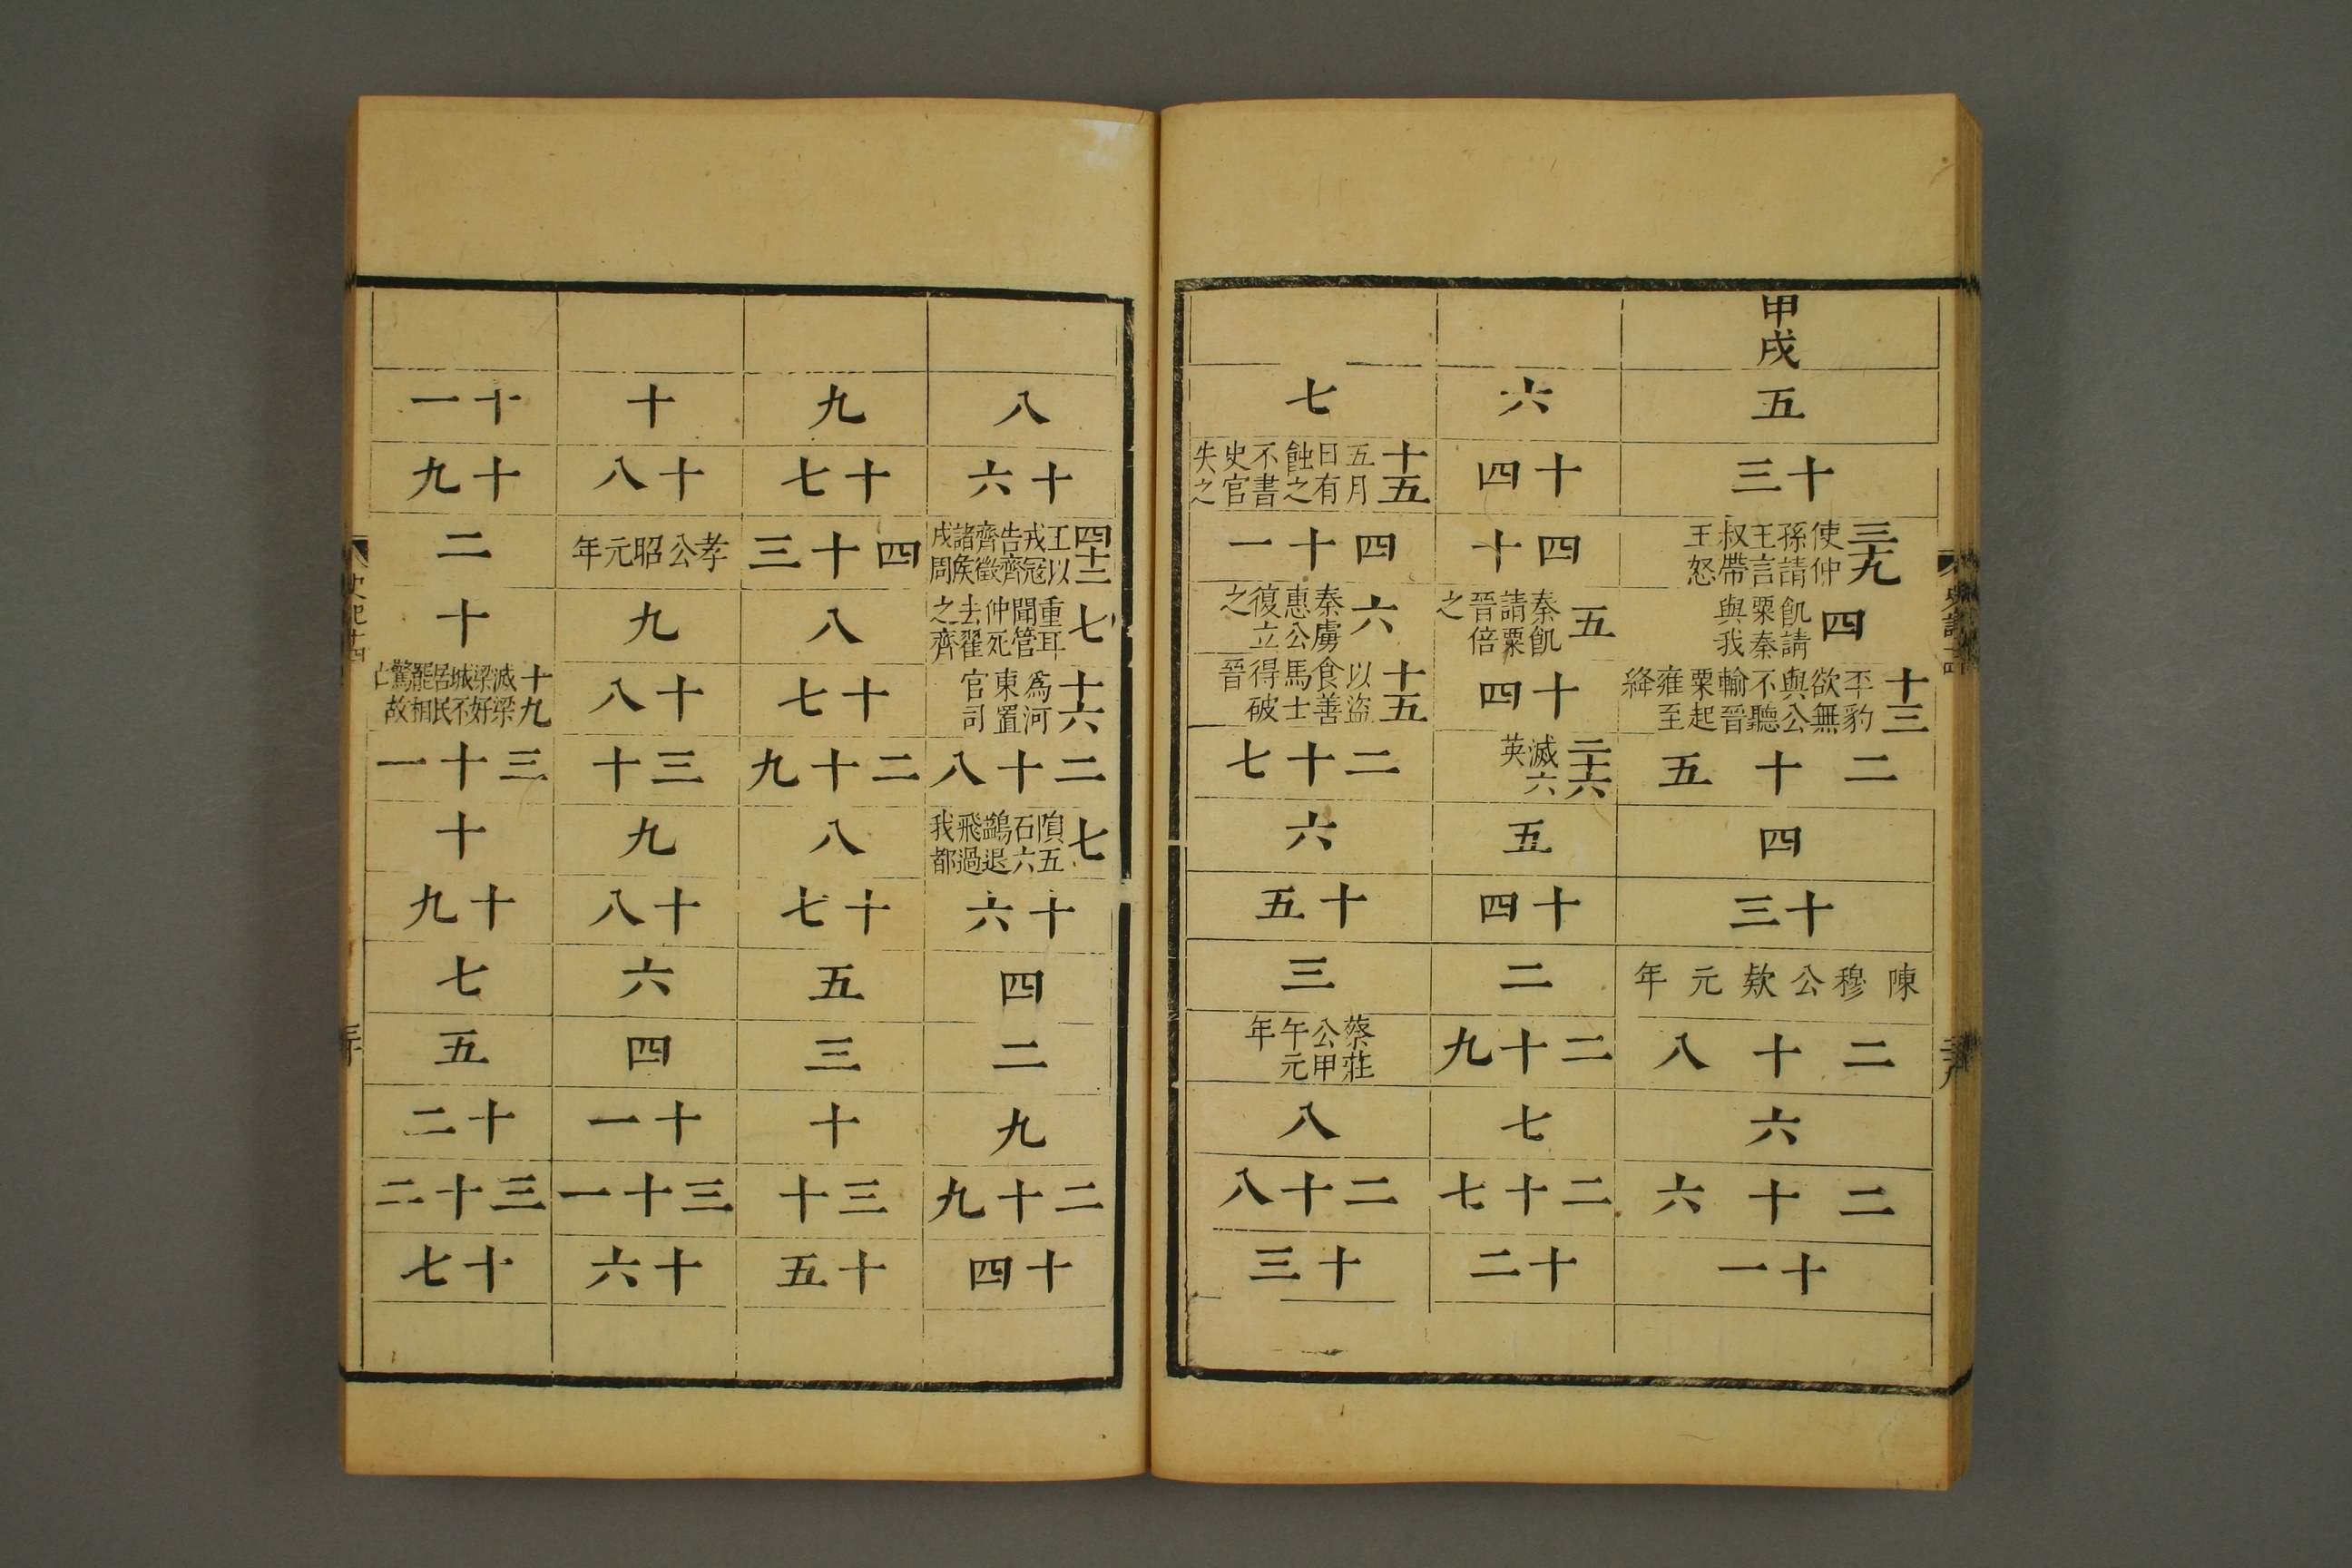 甲戌
五
十三
三十九 使仲孫請王言叔帶王怒
四 飢請粟秦與我
十三 丕豹欲無與公不聽輸晉粟起雍至絳
二十五
四
十三
陳穆公欵元年
二十八
六
二十六
十一
六
十四
四十
五 秦飢請粟晉倍之
十四
二十六 滅六英
五
十四
二
二十九
七
二十七
十二
七
十五 五月日有蝕之不書史官失之
四十一
六 秦虜惠公復立之
十五 以盜食善馬士得破晉
二十七
六
十五
三
蔡莊公甲午元年
八
二十八
十三
八
十六
四十二 王以戎冦告齊齊徵諸侯戍周
七 重耳聞管仲死去翟之齊
十六 為河東置官司
二十八
七 隕五石六鷁退飛過我都
十六
四
二
九
二十九
十四
九
十七
四十三
八
十七
二十九
八
十七
五
三
十
三十
十五
十
十八
孝公昭元年
九
十八
三十
九
十八
六
四
十一
三十一
十六
十一
十九
二
十
十九 滅梁梁好城不居民罷相驚故亡
三十一
十
十九
七
五
十二
三十二
十七
史記十四